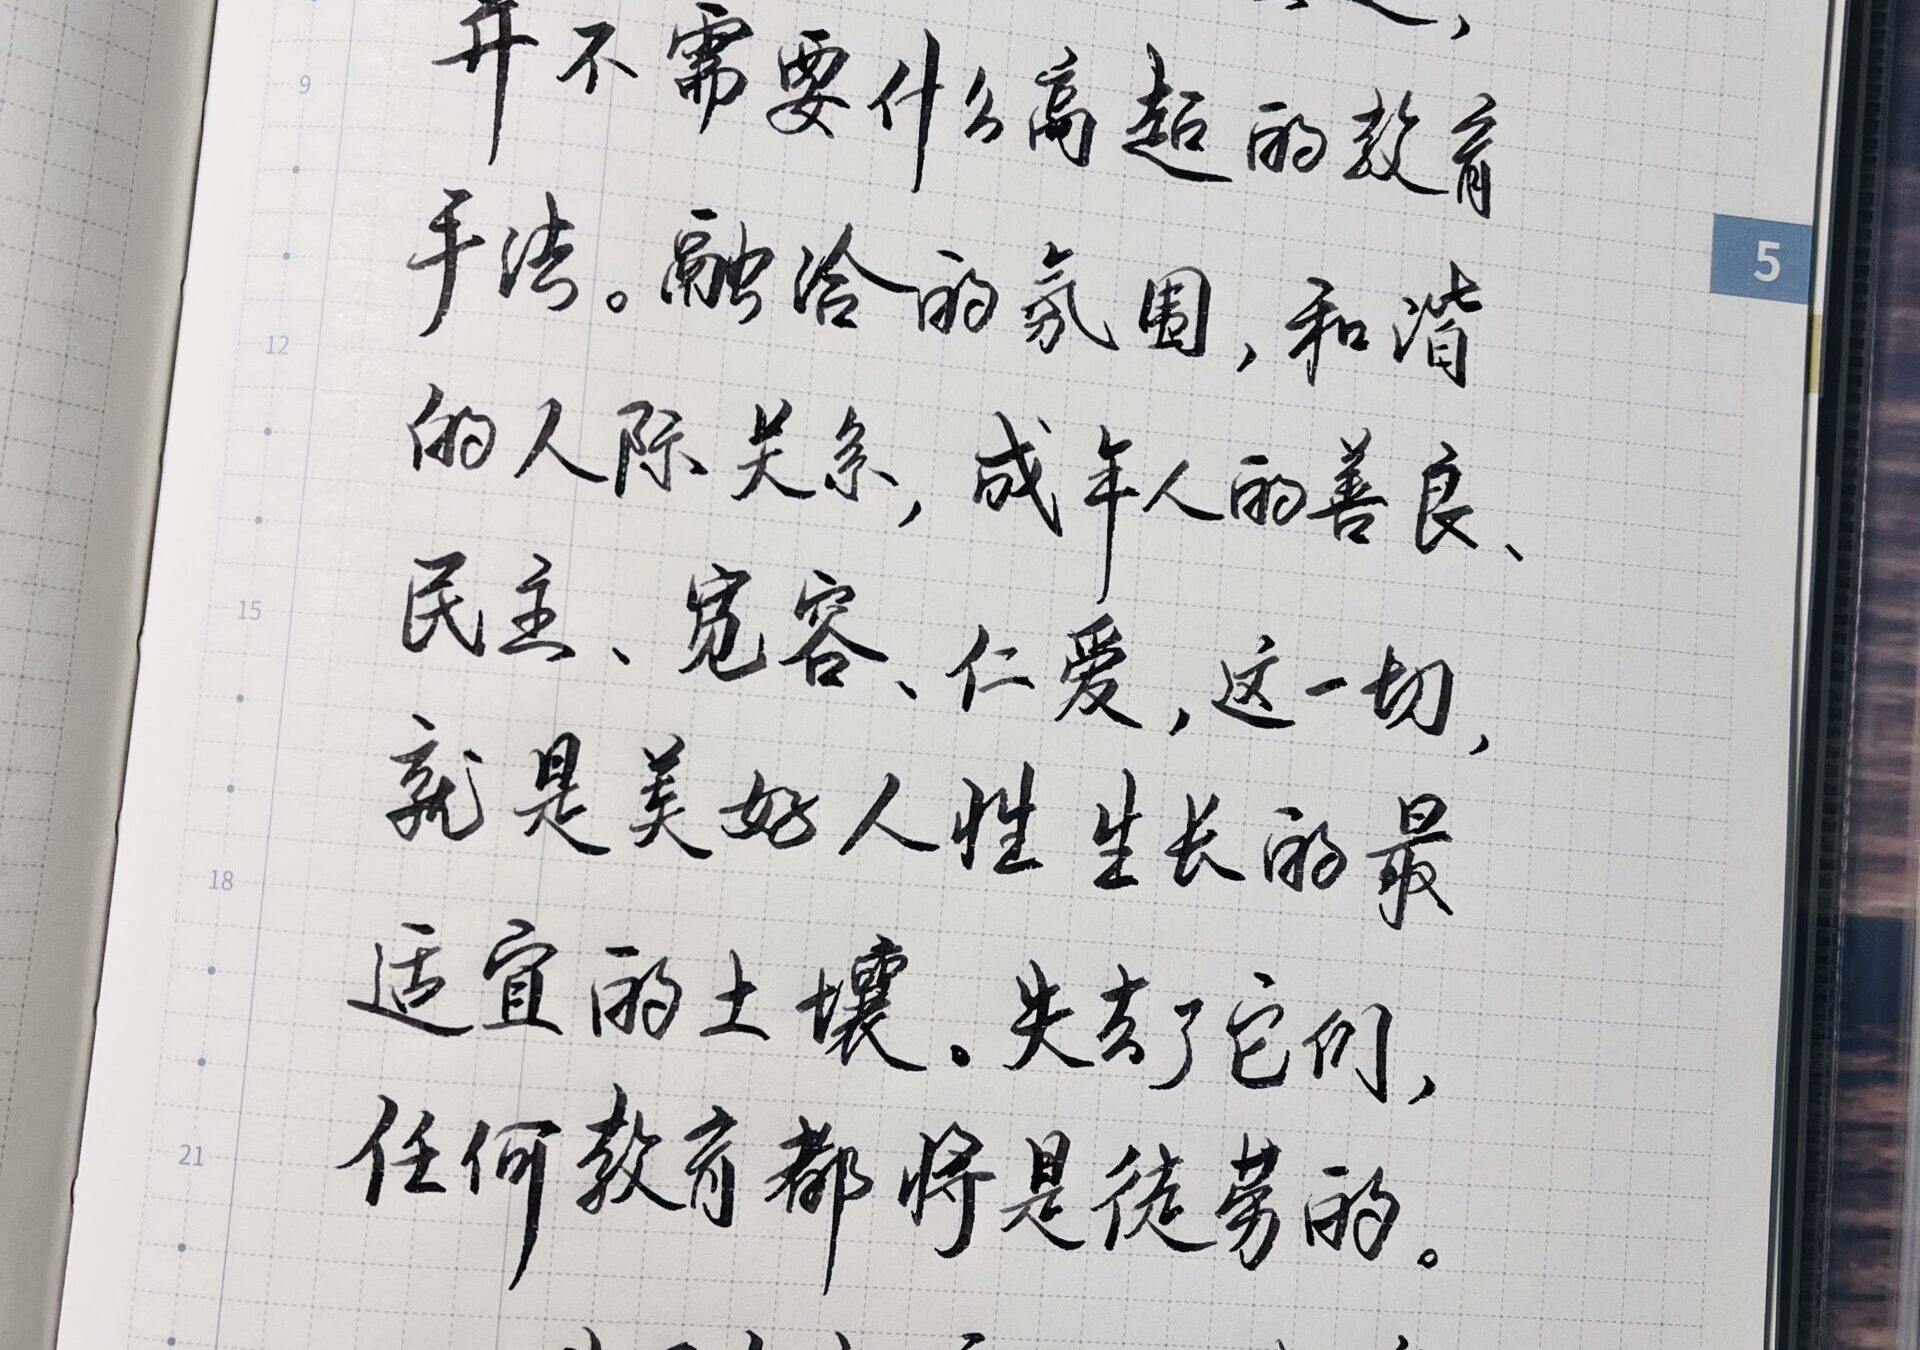 并不需要什么高超的教育
9
手法。融洽的氛围，和谐
5
12
的人际关系，成年人的善良、
民主、宽容、仁爱，这一切，
15
就是美好人性生长的最
18
适宜的土壤。失去了它们，
任何教育都将是徒劳的。
21